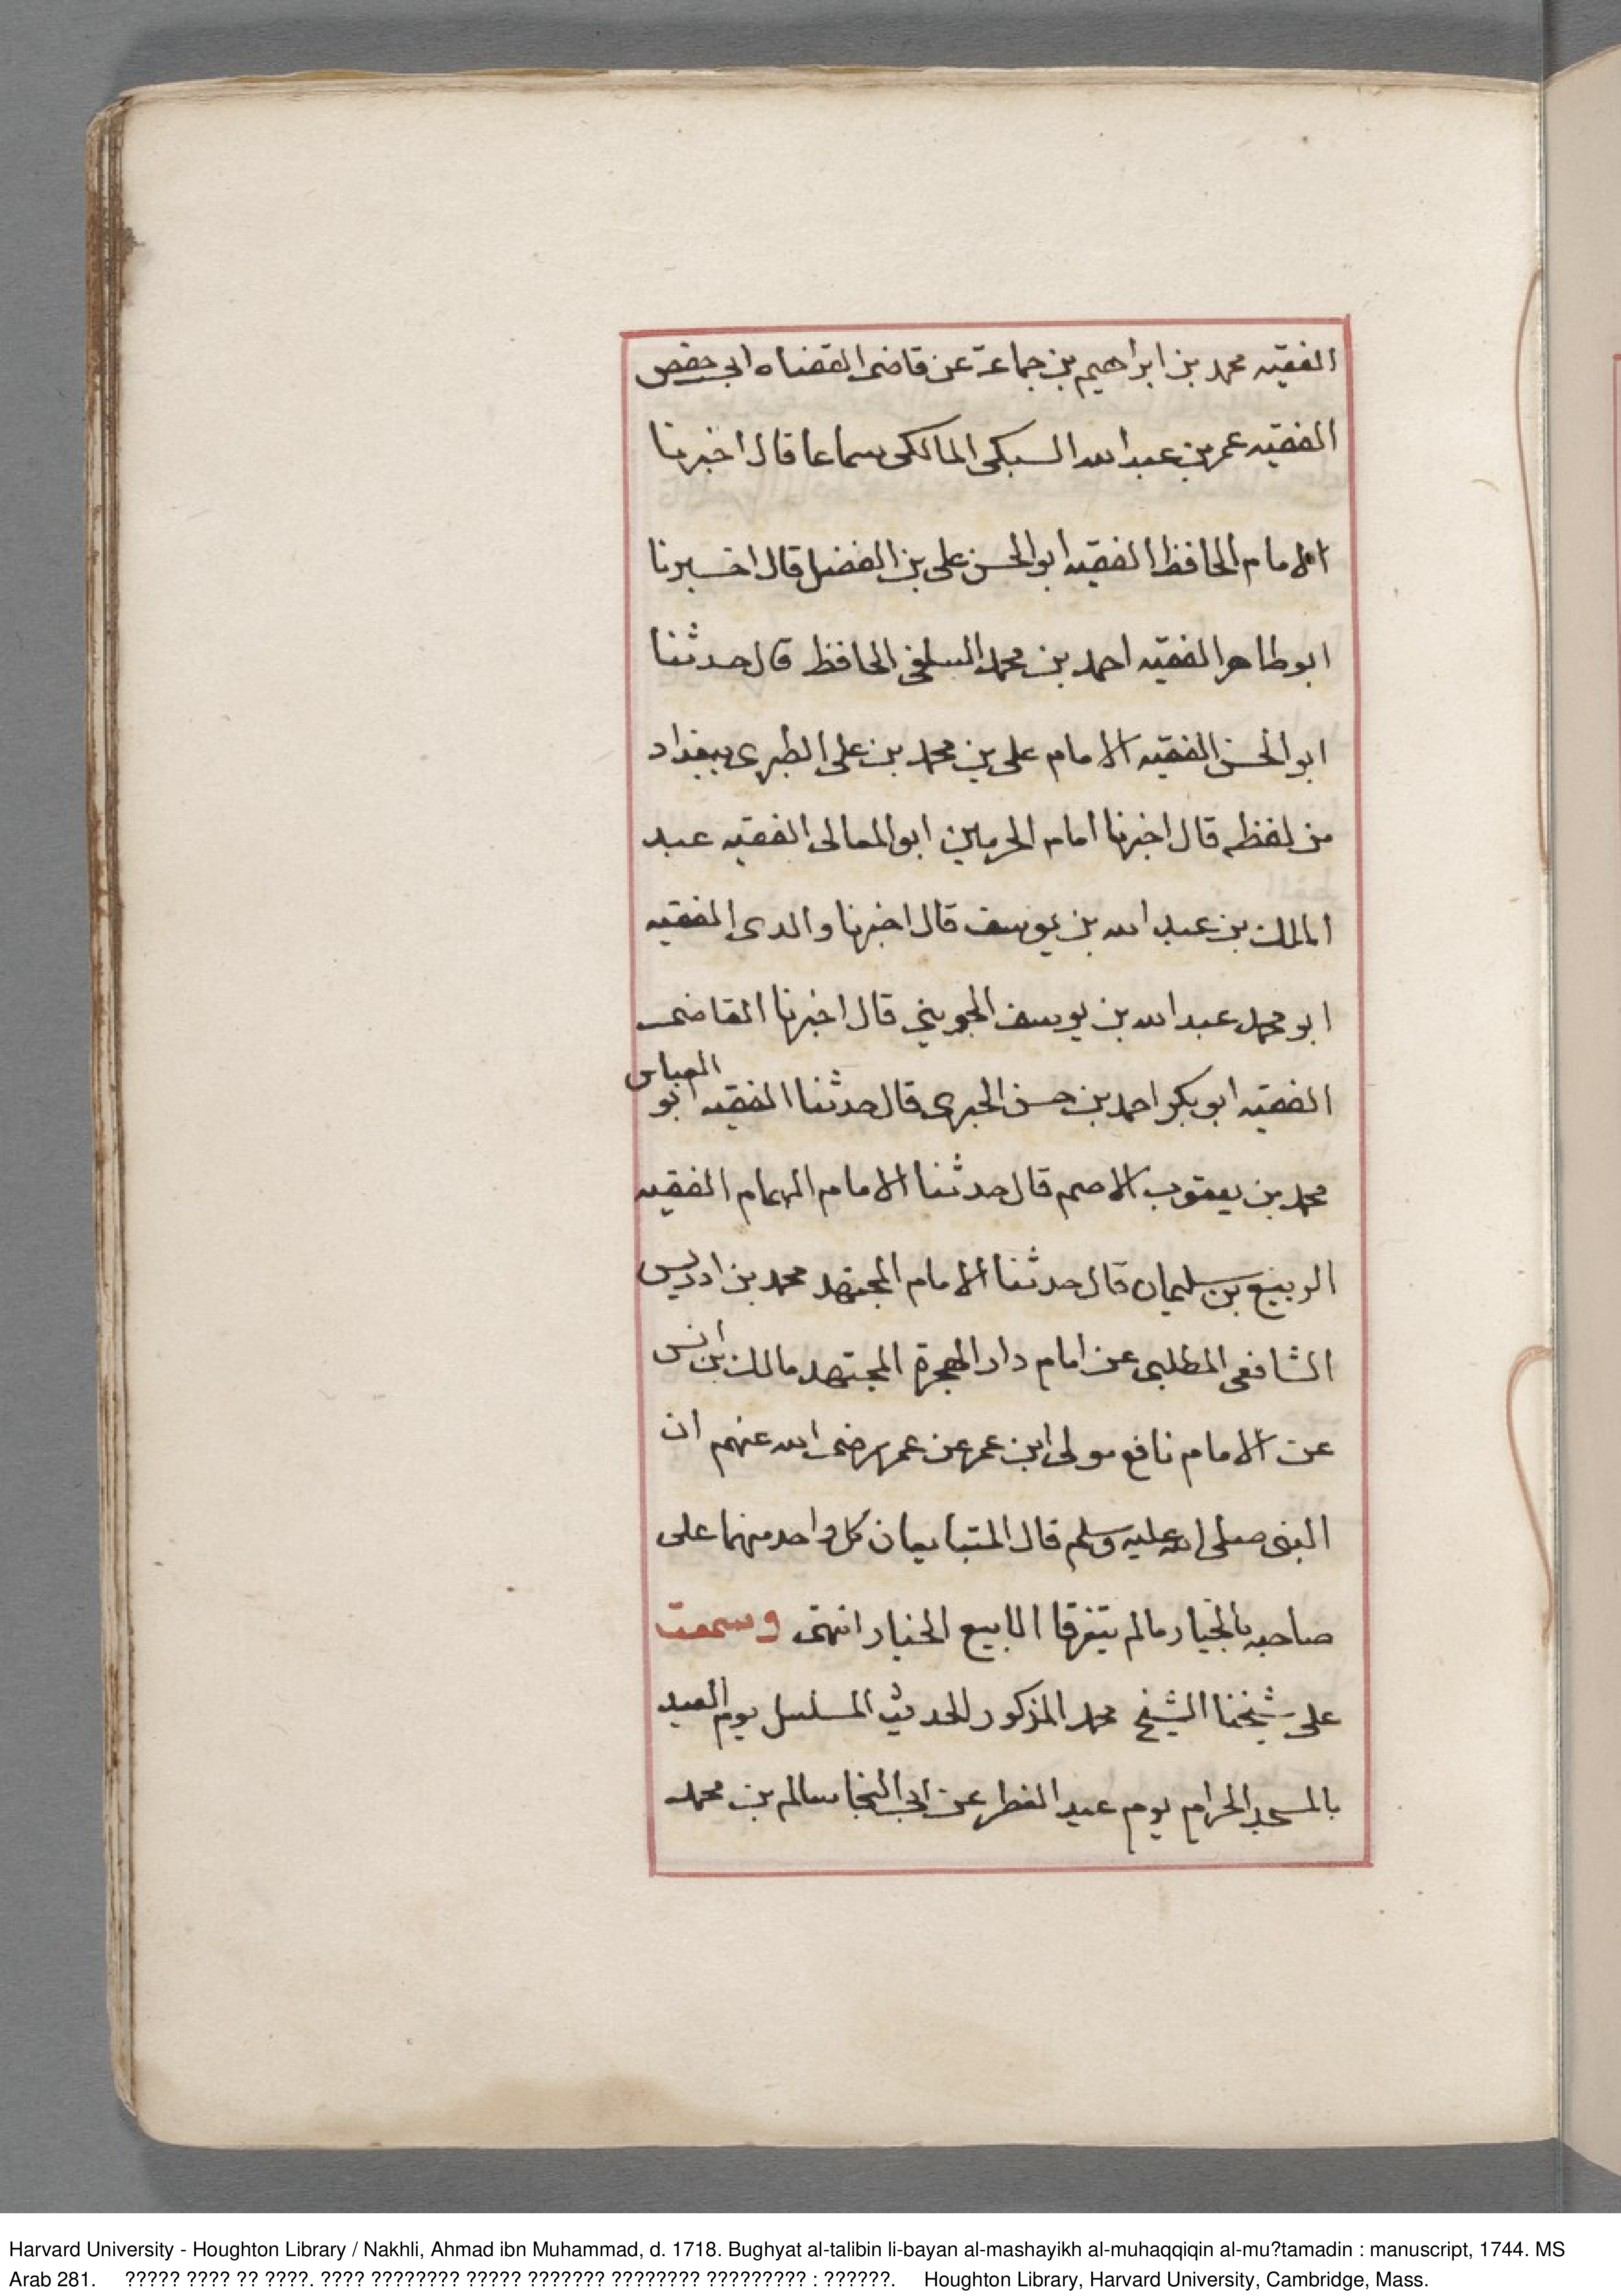 الفقيه محمد بن ابراهيم بن جماعة عن قاضى القضاه ابى حفص
الفقيه عمر بن عبد الله السبكى المالكى سماعا قال اخبرنا
الامام الحافظ الفقيه ابو الحسن على بن الفضل قال اخبرنا
ابو طاهر الفقيه احمد بن محمد السلفى الحافظ قال حدثنا
ابو الحسن الفقيه الامام على بن محمد بن على الطبرى ببغداد
من لفظه قال اخبرنا امام الحرمين ابو المعالى الفقيه عبد
الملك بن عبد الله بن يوسف قال اخبرنا والدى الفقيه
ابو محمد عبد الله بن يوسف الجوينى قال اخبرنا القاضى
الفقيه ابو بكر احمد بن حسن الحبرى قال حدثنا الفقيه ابو العباس
محمد بن يعقوب الاصم قال حدثنا الامام الهمام الفقيه
الربيع بن سليمان قال حدثنا الامام المجتهد محمد بن ادريس
الشافعى المطلبى عن امام دار الهجرة المجتهد مالك بن انس
عن الامام نافع مولى ابن عمر عن عمر رضى الله عنهم ان
النبى صلى الله عليه وسلم قال المتبايعان كل واحد منهما على
صاحبه بالخيار مالم يتفرقا الابيع الخيار انتهى وسمعت
على شيخنا الشيخ محمد المذكور للحديث المسلسل يوم العيد
بالمسجد الحرام يوم عيد الفطر عن ابى النجا سالم بن محمد
Harvard University - Houghton Library / Nakhli, Ahmad ibn Muhammad, d. 1718. Bughyat al-talibin li-bayan al-mashayikh al-muhaqqiqin al-mu?tamadin : manuscript, 1744. MS
Arab 281. ????? ???? ?? ????. ???? ???????? ????? ??????? ???????? ????????? : ??????. Houghton Library, Harvard University, Cambridge, Mass.